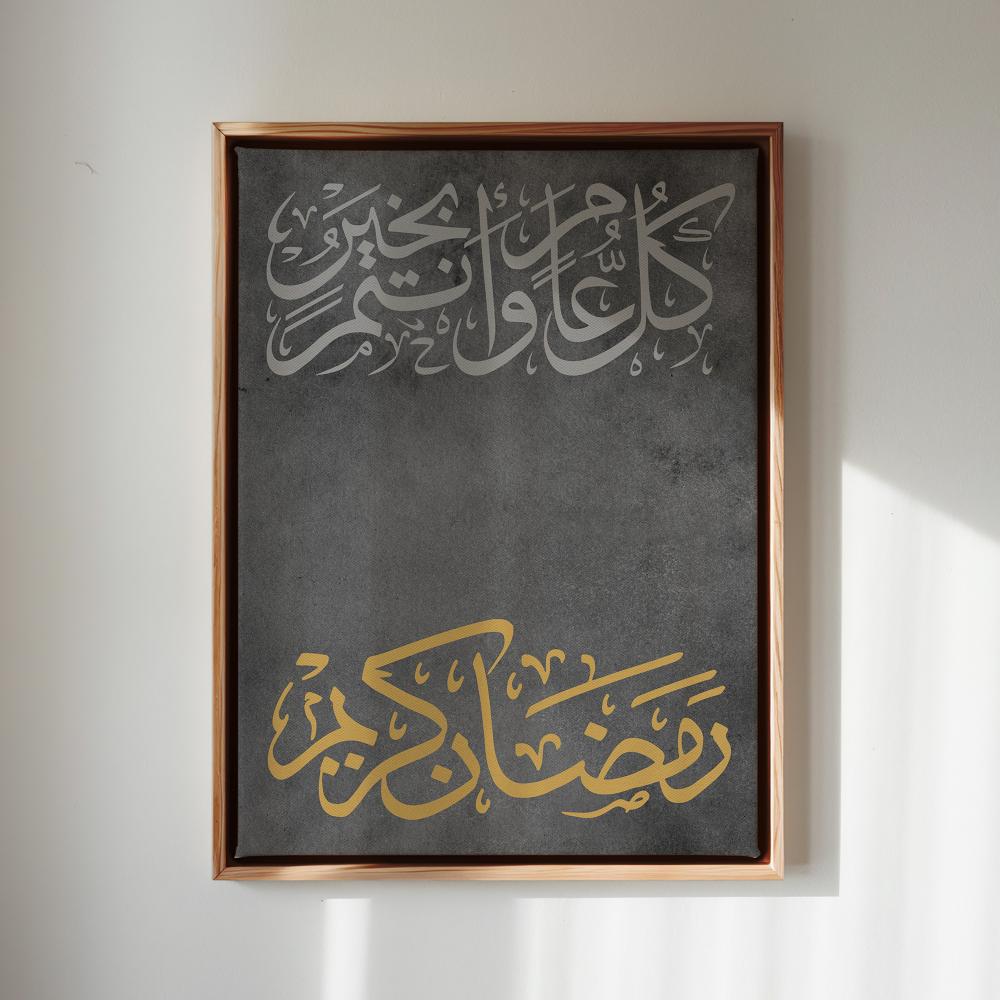 كُلُّ عَامٍ وَأَنتُمْ بِخَيْرٍ
رَمَضَان كَرِيم